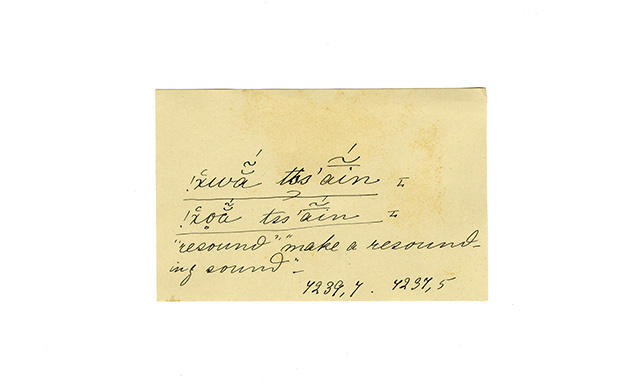 !x̌wã́ ttss'ã́in I
!x̌o̯ã́ tss'ã́in I
"resound", "make a resound-
ing sound".
4239,4. 4237,5